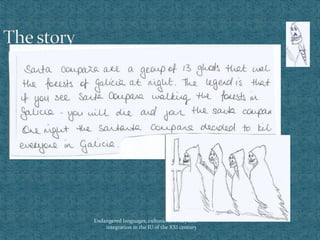 The story
Santa Compaña are a group of 13 ghosts that wal
the forests of Galicia at night. The legend is that
if you see Santa Compana walking the forests in
Galicia - you will die and join the santa compan
One night the Santa Compana decided to kil
everyone in Galicia.
Endangered languages, cultural
integration in the EU of the XXI century